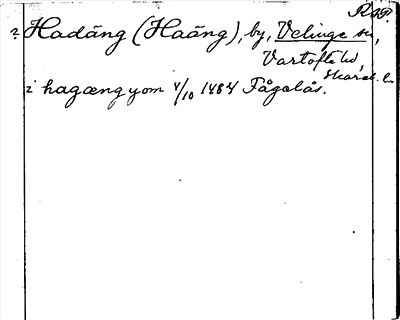 RAP.
? Hadäng (Haäng), by, Velinge sn,
Vartofta hd,
Skarab. l.
i hagængyom 4/10 1484 Fågelås.